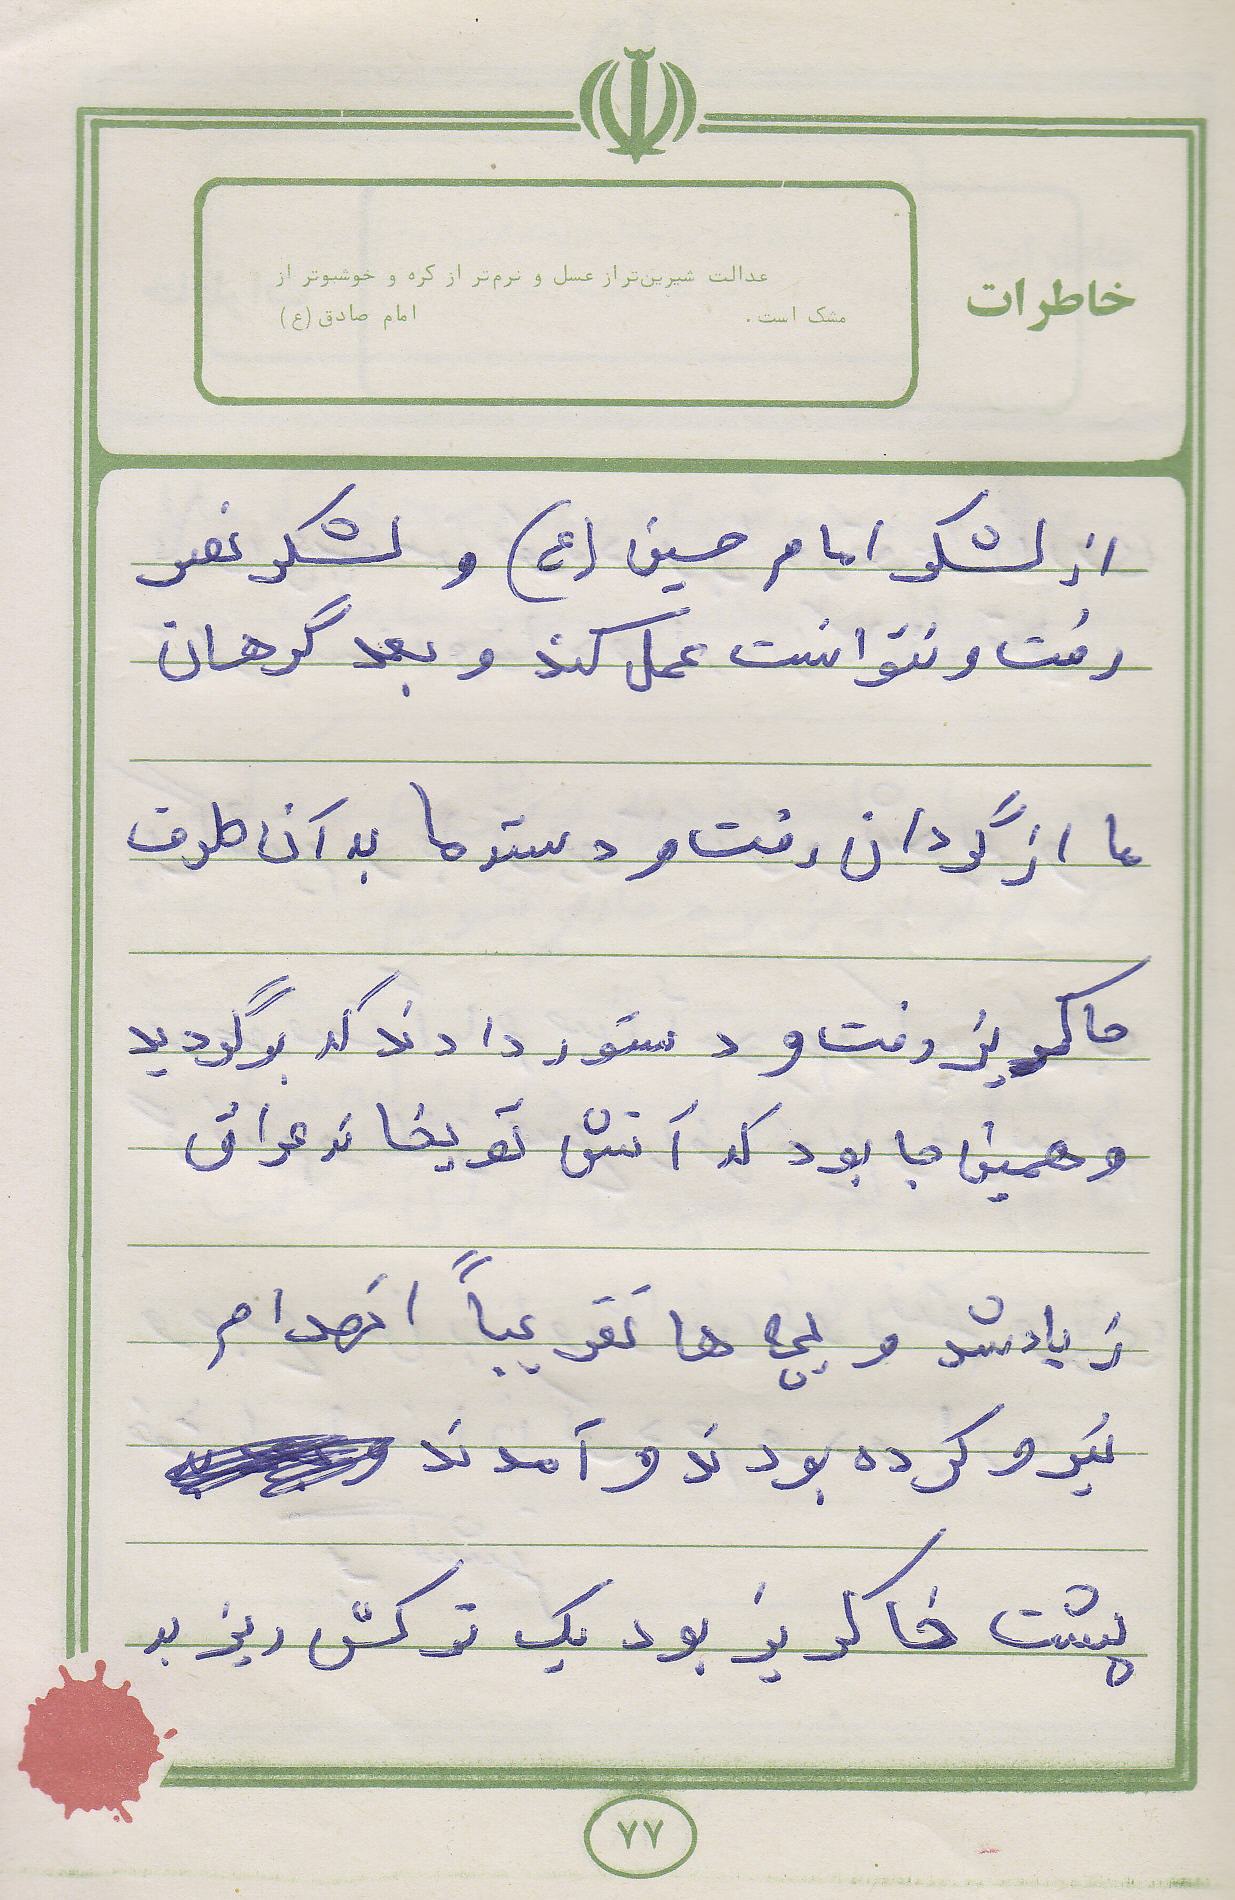 خاطرات
عدالت شیرین‌تر از عسل و نرم‌تر از کره و خوشبوتر از
مشک است. امام صادق (ع)
از لشکر امام حسین (ع) و لشکر نصر
رفت و نتوانست عمل کند و بعد گرهان
ما از گردان رفت و دسته ما به آن طرف
خاکریز رفت و دستور دادند که برگردید
و همین جا بود که آتش توپخانه عراق
زیاد شد و بچه ها تقریباً انهدام
نیرو کرده بودند و آمدند
پشت خاکریز بود یک ترکش ریز به
۷۷